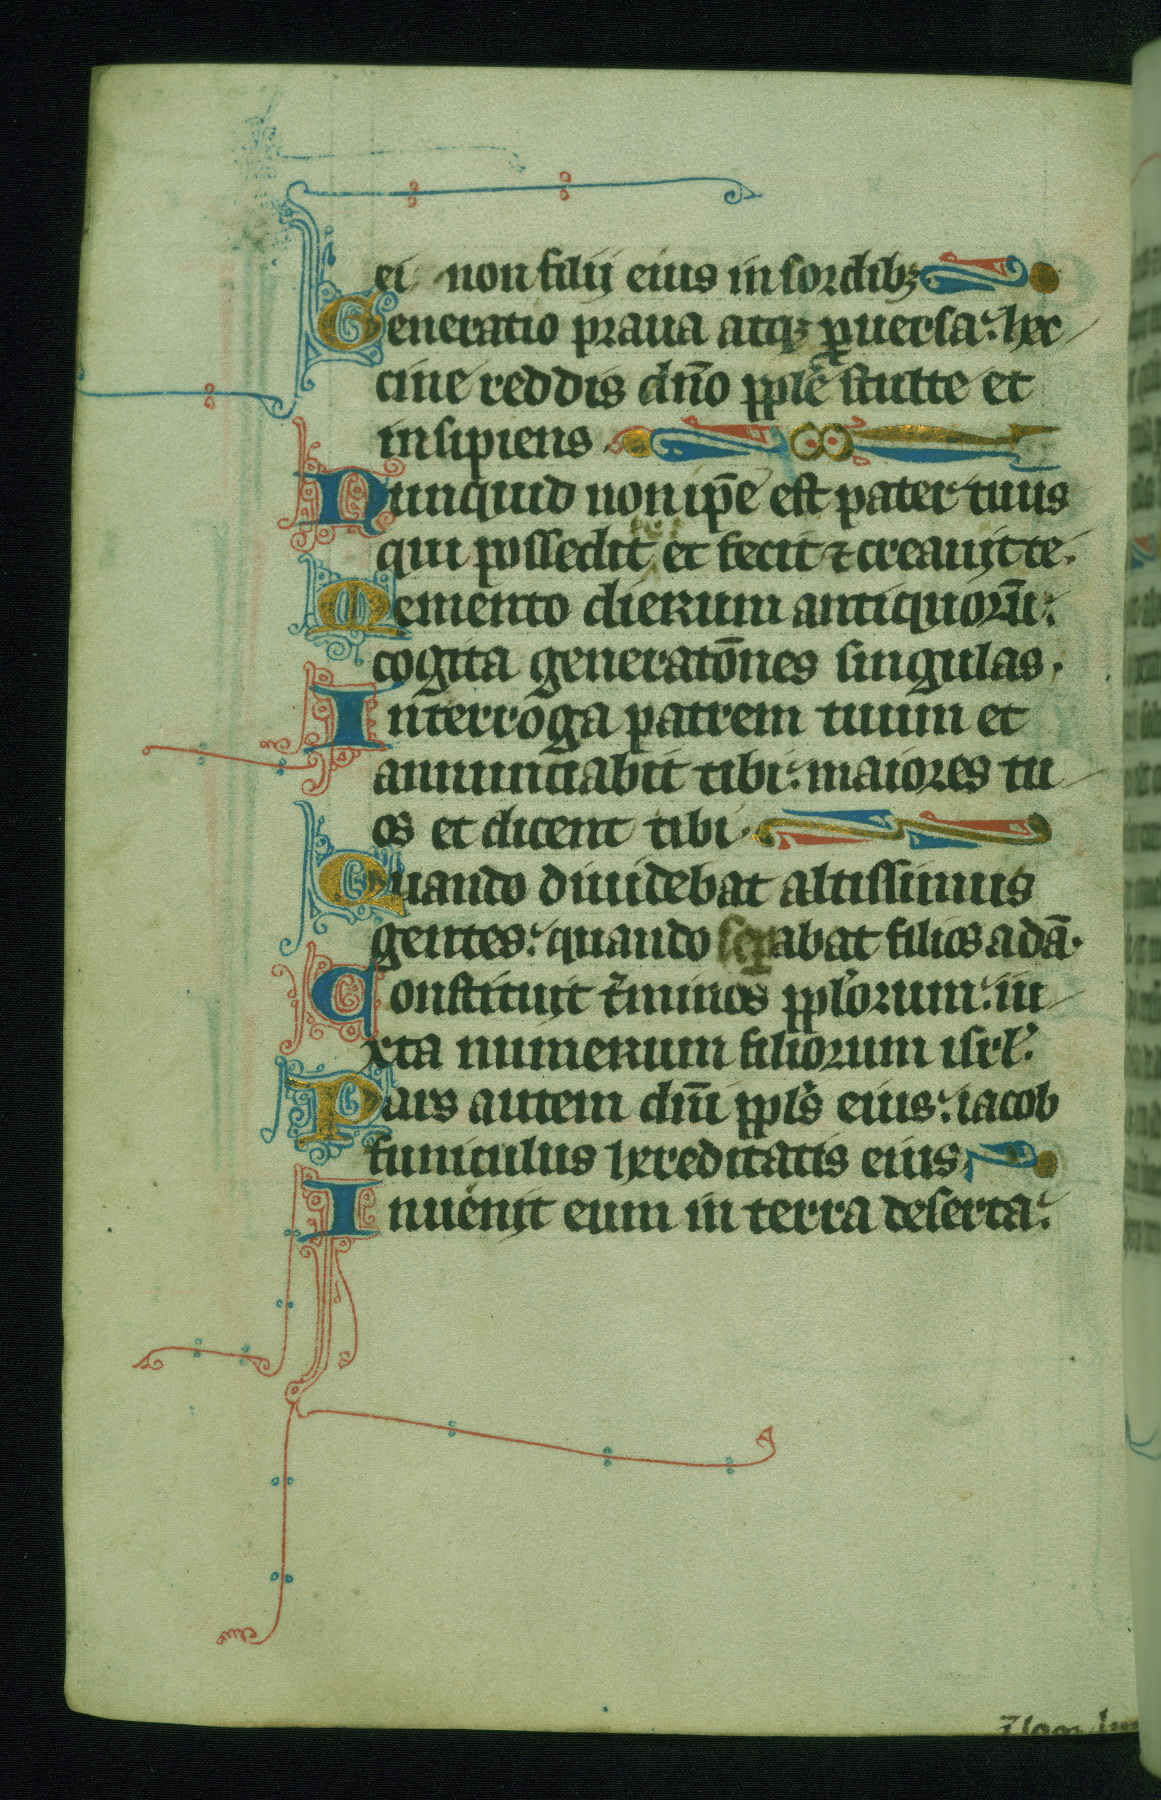 ei non filij eius in sordibꝫ
Generatio praua atqꝫ ꝑuersa: hec
cine reddis dn̄o pple̅ stulte et
insipiens
Nunquid non ip̄e est pater tuus
qui possedit et fecit ⁊ creauit te.
Memento dierum antiquorū:
cogita generatōnes singulas.
Interroga patrem tuum et
annunciabit tibi: maiores tu
os et dicent tibi.
Quando diuidebat altissimus
gentes: quando seꝑabat filios adā.
Constituit t̄minos pplorum: iu
xta numerum filiorum isrl̓.
Pars autem dn̄i ppls̓ eius: iacob
funiculus hereditatis eius.
Inuenit eum in terra deserta: